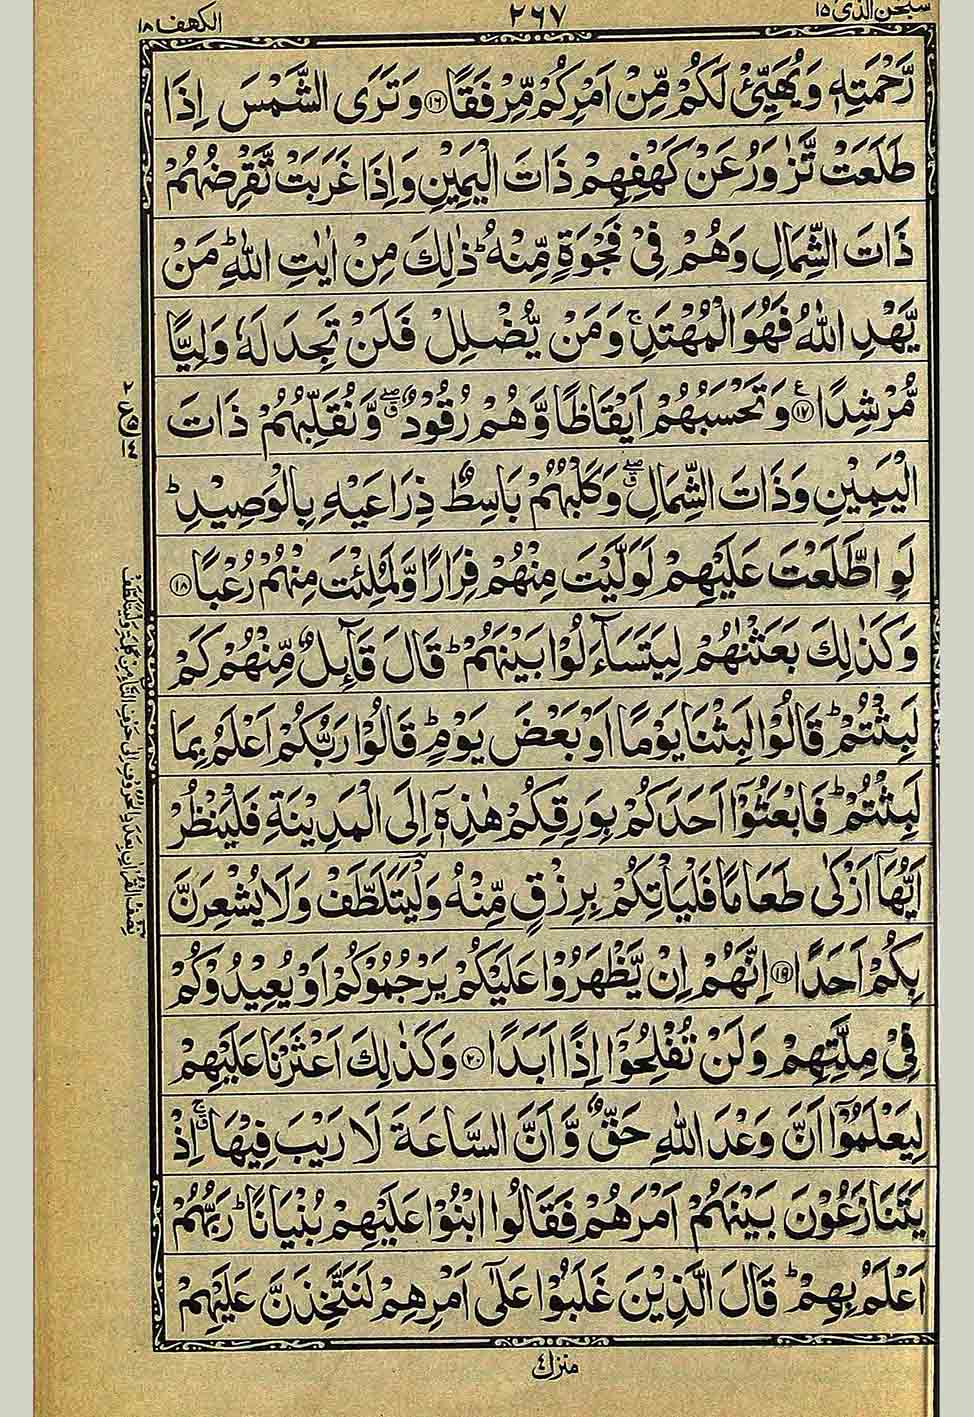 سبحن الذی ۱۵
۲۶۷
الكهف ۱۸
رَّحْمَتِهٖ وَيُهَيِّئْ لَكُمْ مِّنْ اَمْرِكُمْ مِّرْفَقًا ۝۱۶ وَتَرَى الشَّمْسَ اِذَا
طَلَعَتْ تَّزٰوَرُ عَنْ كَهْفِهِمْ ذَاتَ الْيَمِيْنِ وَاِذَا غَرَبَتْ تَّقْرِضُهُمْ
ذَاتَ الشِّمَالِ وَهُمْ فِيْ فَجْوَةٍ مِّنْهُ ؕ ذٰلِكَ مِنْ اٰيٰتِ اللّٰهِ ؕ مَنْ
يَّهْدِ اللّٰهُ فَهُوَ الْمُهْتَدِ ۚ وَمَنْ يُّضْلِلْ فَلَنْ تَجِدَ لَهٗ وَلِيًّا
مُّرْشِدًا ۝۱۷ وَتَحْسَبُهُمْ اَيْقَاظًا وَّهُمْ رُقُوْدٌ ۖ وَّنُقَلِّبُهُمْ ذَاتَ
الْيَمِيْنِ وَذَاتَ الشِّمَالِ ۖ وَكَلْبُهُمْ بَاسِطٌ ذِرَاعَيْهِ بِالْوَصِيْدِ ؕ
لَوِ اطَّلَعْتَ عَلَيْهِمْ لَوَلَّيْتَ مِنْهُمْ فِرَارًا وَّلَمُلِئْتَ مِنْهُمْ رُعْبًا ۝۱۸
وَكَذٰلِكَ بَعَثْنٰهُمْ لِيَتَسَآءَلُوْا بَيْنَهُمْ ؕ قَالَ قَآئِلٌ مِّنْهُمْ كَمْ
لَبِثْتُمْ ؕ قَالُوْا لَبِثْنَا يَوْمًا اَوْ بَعْضَ يَوْمٍ ؕ قَالُوْا رَبُّكُمْ اَعْلَمُ بِمَا
لَبِثْتُمْ ؕ فَابْعَثُوْٓا اَحَدَكُمْ بِوَرِقِكُمْ هٰذِهٖٓ اِلَى الْمَدِيْنَةِ فَلْيَنْظُرْ
اَيُّهَآ اَزْكٰى طَعَامًا فَلْيَاْتِكُمْ بِرِزْقٍ مِّنْهُ وَلْيَتَلَطَّفْ وَلَا يُشْعِرَنَّ
بِكُمْ اَحَدًا ۝۱۹ اِنَّهُمْ اِنْ يَّظْهَرُوْا عَلَيْكُمْ يَرْجُمُوْكُمْ اَوْ يُعِيْدُوْكُمْ
فِيْ مِلَّتِهِمْ وَلَنْ تُفْلِحُوْٓا اِذًا اَبَدًا ۝۲۰ وَكَذٰلِكَ اَعْثَرْنَا عَلَيْهِمْ
لِيَعْلَمُوْٓا اَنَّ وَعْدَ اللّٰهِ حَقٌّ وَّاَنَّ السَّاعَةَ لَا رَيْبَ فِيْهَا ۚ اِذْ
يَتَنَازَعُوْنَ بَيْنَهُمْ اَمْرَهُمْ فَقَالُوا ابْنُوْا عَلَيْهِمْ بُنْيَانًا ؕ رَبُّهُمْ
اَعْلَمُ بِهِمْ ؕ قَالَ الَّذِيْنَ غَلَبُوْا عَلٰٓى اَمْرِهِمْ لَنَتَّخِذَنَّ عَلَيْهِمْ
منزل ٤